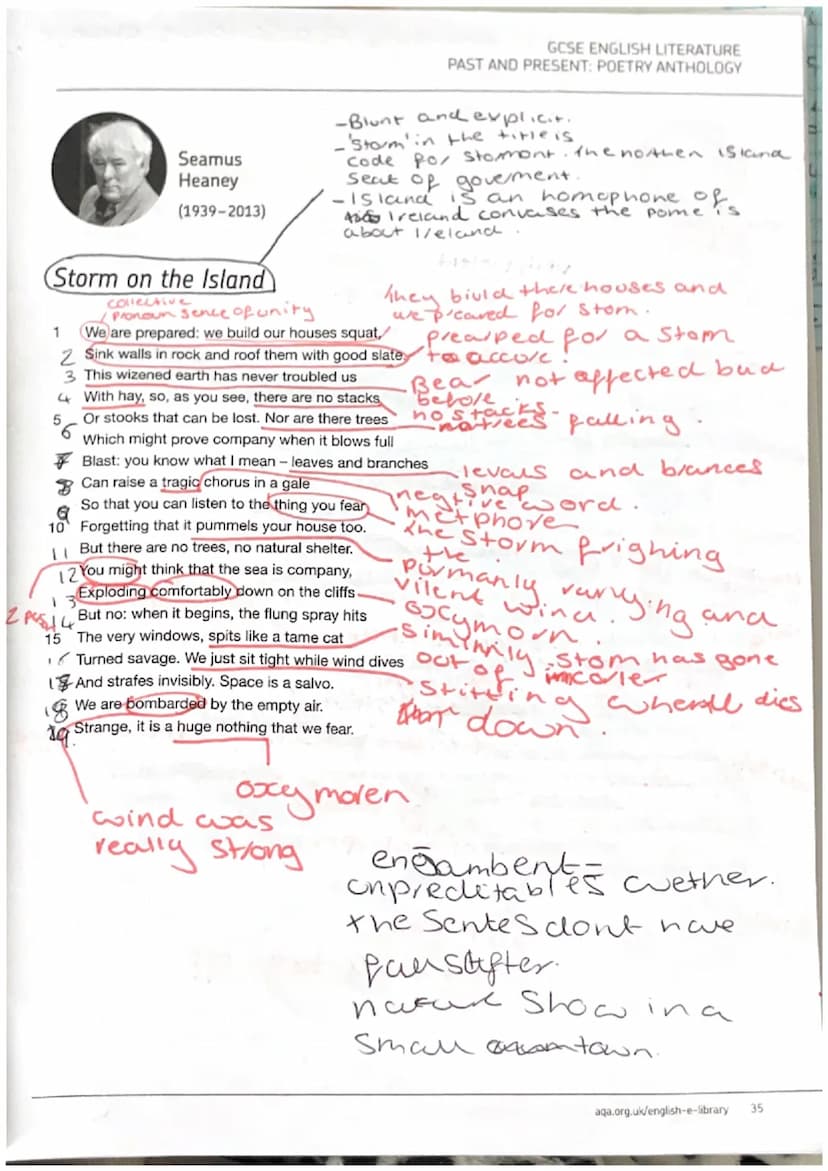 GCSE ENGLISH LITERATURE
PAST AND PRESENT: POETRY ANTHOLOGY
Seamus
Heaney
(1939–2013)
-Blunt and explicit.
-'Storm' in the title is
code for stomont. The nothen island
Seat of goverment.
-Island is an homophone of
Ireland convases the pome is
about Ireland.
Storm on the Island
collective
pronoun sence of unity
they biuld there houses and
we preared for stom.
1 We are prepared: we build our houses squat,
prearped for a stom
2 Sink walls in rock and roof them with good slate.
to accure.
3 This wizened earth has never troubled us
Bear not affected bud
before
4 With hay, so, as you see, there are no stacks
no stacks-
5 Or stooks that can be lost. Nor are there trees
no trees falling.
6 Which might prove company when it blows full
7 Blast: you know what I mean – leaves and branches
levaus and brances
snap
8 Can raise a tragic chorus in a gale
negtive word.
9 So that you can listen to the thing you fear
metphore
10 Forgetting that it pummels your house too.
the storm frighing
the.
11 But there are no trees, no natural shelter.
purmanly varying and
12 You might think that the sea is company,
vilent wind.
13 Exploding comfortably down on the cliffs
oxymorn.
2 14 But no: when it begins, the flung spray hits
15 The very windows, spits like a tame cat
simihily. Stom has gone
16 Turned savage. We just sit tight while wind dives
out of
17 And strafes invisibly. Space is a salvo.
18 We are bombarded by the empty air.
down.
19 Strange, it is a huge nothing that we fear.
oxymoren
wind was
really strong
enjambent=
unpreditables wether.
the Sentes dont have
pausafter.
nature Show in a
small town.
aqa.org.uk/english-e-library 35